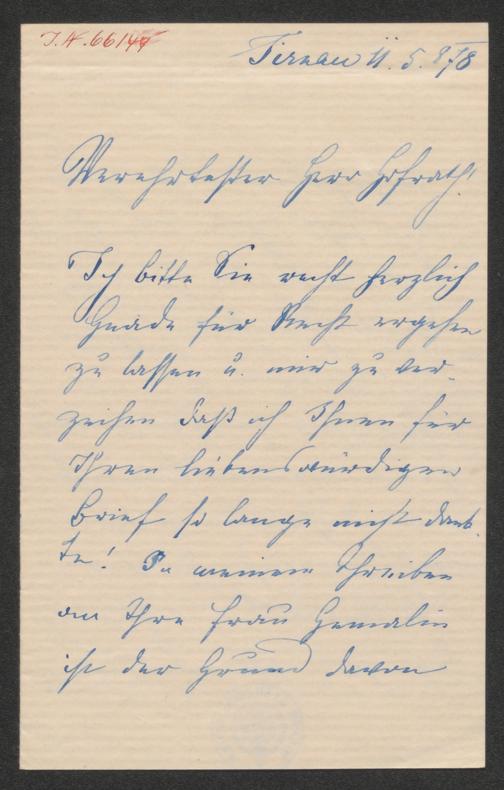 I.N. 66144
Tirnau 11. 5. 878
Verehrtester Herr Hofrath!
Ich bitte Sie recht herzlich
Gnade für Recht ergehen
zu lassen u. mir zu ver-
zeihen daß ich Ihnen für
Ihren liebenswürdigen
Brief so lange nicht dank-
te! In meinem Schreiben
an Ihre Frau Gemalin
ist der Grund davon